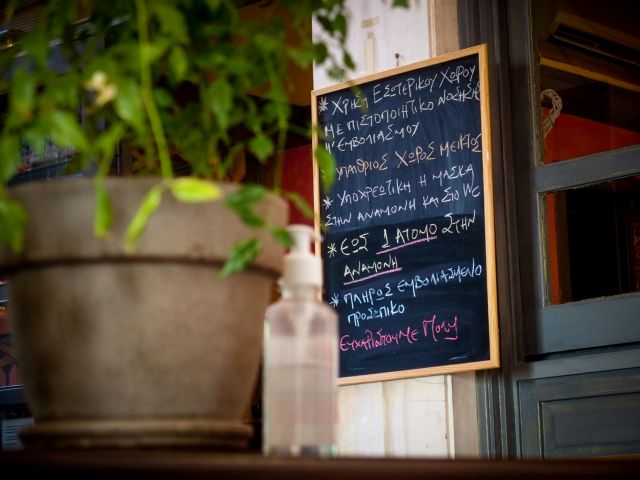 * ΧΡΗΣΗ ΕΣΩΤΕΡΙΚΟΥ ΧΩΡΟΥ
ΜΕ ΠΙΣΤΟΠΟΙΗΤΙΚΟ ΝΟΣΗΣΗΣ
Ή ΕΜΒΟΛΙΑΣΜΟΥ
* ΥΠΑΙΘΡΙΟΣ ΧΩΡΟΣ ΜΕΙΚΤΟΣ
* ΥΠΟΧΡΕΩΤΙΚΗ Η ΜΑΣΚΑ
ΣΤΗΝ ΑΝΑΜΟΝΗ ΚΑΙ ΣΤΟ WC
* ΕΩΣ 1 ΑΤΟΜΟ ΣΤΗΝ
ΑΝΑΜΟΝΗ
* ΠΛΗΡΩΣ ΕΜΒΟΛΙΑΣΜΕΝΟ
ΠΡΟΣΩΠΙΚΟ
ΕΥΧΑΡΙΣΤΟΥΜΕ ΠΟΛΥ